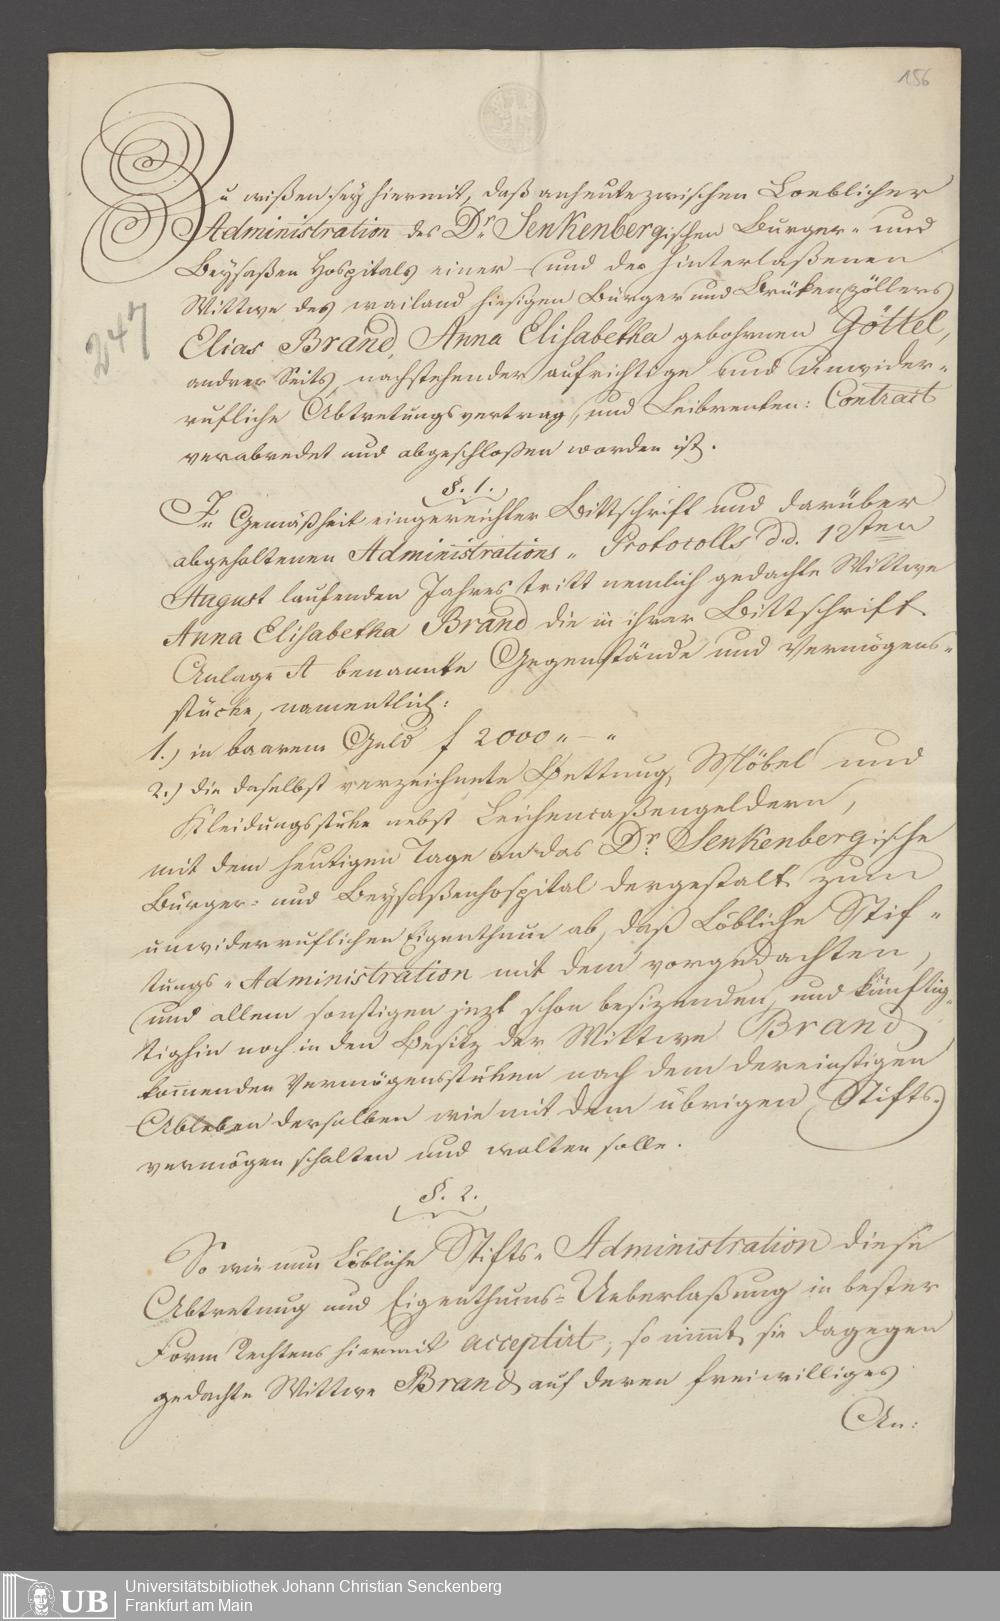 156
Zu wißen sey hiermit, daß anheute zwischen Loeblicher
Administration des Dr. Senkenbergischen Burger- und
Beysaßen Hospitals einer- und der hinterlaßenen
Wittwe des weiland hiesigen Bürger und Brükenzöllers
247
Elias Brand, Anna Elisabetha gebohrnen Göttel,
andrer Seits, nachstehender aufrichtige und unwider-
rufliche Abtretungsvertrag, und Leibrenten: Contract
verabredet und abgeschloßen worden ist.
§. 1.
In Gemäßheit eingereichter Bittschrift und darüber
abgehaltenen Administrations- Protocolls d.d. 12ten
August laufenden Jahres tritt nemlich gedachte Wittwe
Anna Elisabetha Brand die in ihrer Bittschrift
Anlage A benannte Gegenstände und Vermögens-
stücke, namentlich:
1.) in baarem Geld f 2000 „ - „
2.) die daselbst verzeichnete Bettung, Möbel und
Kleidungsstüke nebst Leichencaßengeldern,
mit dem heutigen Tage an das Dr. Senkenbergische
Bürger- und Beysaßenhospital dergestalt zum
unwiderruflichen Eigenthum ab, daß Löbliche Stif-
tungs-Administration mit dem vorgedachten,
und allem sonstigen jezt schon besizenden, und künftig-
tighin noch in den Besitz der Wittwe Brand
kommenden Vermögensstüken nach dem dereinstigen
Ableben derselben wie mit dem übrigen Stifts-
vermögen schalten und walten solle.
§. 2.
So wie nun Löbliche Stifts-Administration diese
Abtretung und Eigenthums-Ueberlaßung in bester
Form Rechtens hiermit acceptirt; so nimmt sie dagegen
gedachte Wittwe Brand auf deren freiwilliges
An:
UB
Universitätsbibliothek Johann Christian Senckenberg
Frankfurt am Main